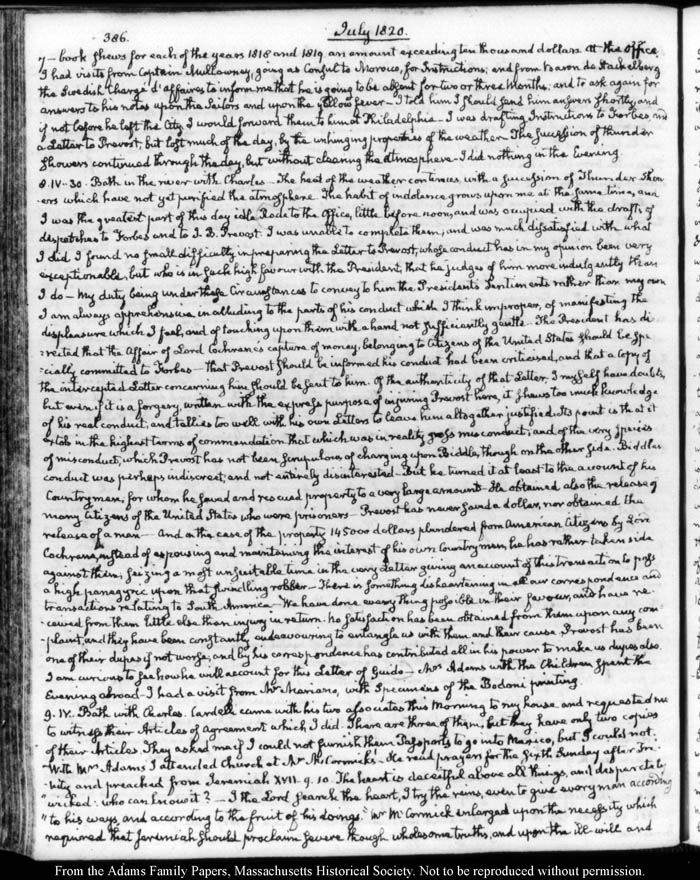 386.
July 1820.
7 — book shews for each of the years 1818 and 1819 an amount exceeding ten thousand dollars. At the Office
I had visits from Captain Mullowney, going as Consul to Morocco, for Instructions; and from Baron de Stackelberg
the Swedish Chargé d'affaires to inform me that he is going to be absent for two or three Months; and to ask again for
answers to his notes upon the Sailors and upon the yellow fever — I told him I should send him answers shortly, and
if not before he left the City, I would forward them to him at Philadelphia — I was drafting Instructions to Forbes and
a Letter to Prevost, but lost much of the day, by the unhinging properties of the weather — The succession of thunder
showers continued through the day, but without clearing the atmosphere — I did nothing in the Evening
8. IV. 30. Bath in the river with Charles — The heat of the weather continues with a succession of Thunder Show
ers which have not yet purified the atmosphere. The habit of indolence grows upon me at the same time, and
I was the greatest part of this day idle. Rode to the Office, little before noon, and was occupied with the drafts of
despatches to Forbes and to J. B. Prevost. I was unable to complete them, and was much dissatisfied with what
I did. I found no small difficulty in preparing the Letter to Prevost, whose conduct has in my opinion been very
exceptionable, but who is in such high favour with the President, that he judges of him more indulgently than
I do — My duty being under these Circumstances to convey to him the President's Sentiments rather than my own
I am always apprehensive in alluding to the parts of his conduct which I think improper, of manifesting the
displeasure which I feel, and of touching upon them with a hand not sufficiently gentle — The President has di
rected that the Affair of Lord Cochrane's capture of money, belonging to Citizens of the United States should be spe
cially committed to Forbes — That Prevost should be informed his conduct had been criticised, and that a Copy of
the intercepted Letter concerning him should be sent to him. Of the authenticity of that Letter, I myself have doubts,
but even if it is a forgery, written with the express purpose of injuring Prevost here, it shews too much knowledge
of his real conduct, and tallies too well with his own Letters to leave him altogether justified. Its point is that it
extols in the highest terms of commendation that which was in reality gross misconduct; and of the very species
of misconduct, which Prevost has not been scrupulous of charging upon Biddle, though on the other side. Biddle's
conduct was perhaps indiscreet, and not entirely disinterested — But he turned it at least to the account of his
Countrymen, for whom he saved and rescued property to a very large amount — He obtained also the release of
many Citizens of the United States who were prisoners — Prevost has never saved a dollar, nor obtained the
release of a man — And in the case of the property 145000 dollars plundered from American Citizens by Lord
Cochrane, instead of espousing and maintaining the interest of his own Countrymen, he has rather taken side
against them, seizing a most unsuitable time in the very Letter giving an account of this transaction to pass
a high panegyric upon that swindling robber — There is something disheartening in all our correspondence and
transactions relating to South America — We have done every thing possible in their favour, and have re
ceived from them little else than injury in return. No satisfaction has been obtained from them upon any com
plaint, and they have been constantly endeavouring to entangle us with them and their cause. Prevost has been
one of their dupes if not worse, and by his correspondence has contributed all in his power to make us dupes also.
I am curious to see how he will account for this Letter of Guido — Mrs Adams with the Children spent the
Evening abroad — I had a visit from Mr Mariano, with specimens of the Bodoni printing.
9. IV. Bath with Charles. Cardell came with his two associates this Morning to my house and requested me
to witness their Articles of Agreement which I did. There are three of them, but they have only two copies
of their Articles. They asked me if I could not furnish them Passports to go into Mexico, but I could not.
With Mrs Adams I attended Church at Mr McCormick's. He read prayers for the sixth Sunday after Tri
nity and preached from Jeremiah XVII. 9. 10. The heart is deceitful above all things, and desperately
"wicked: who can know it? — I the Lord search the heart, I try the reins, even to give every man according
"to his ways, and according to the fruit of his doings." Mr McCormick enlarged upon the necessity which
required that Jeremiah should proclaim severe though wholesome truths, and upon the ill-will and
From the Adams Family Papers, Massachusetts Historical Society. Not to be reproduced without permission.